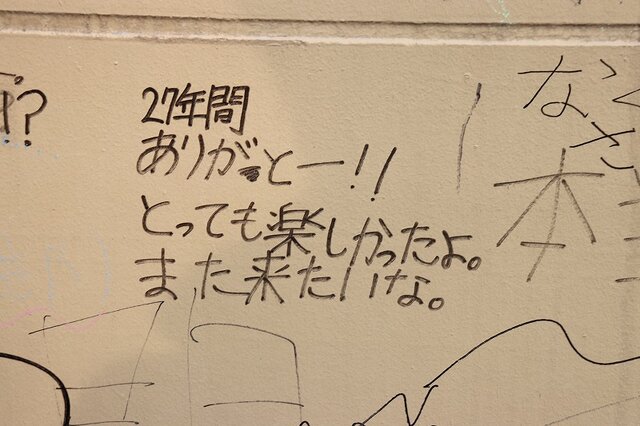 27年間
ありがとー!!
とっても楽しかったよ。
また来たいな。
?
なく
さ
本